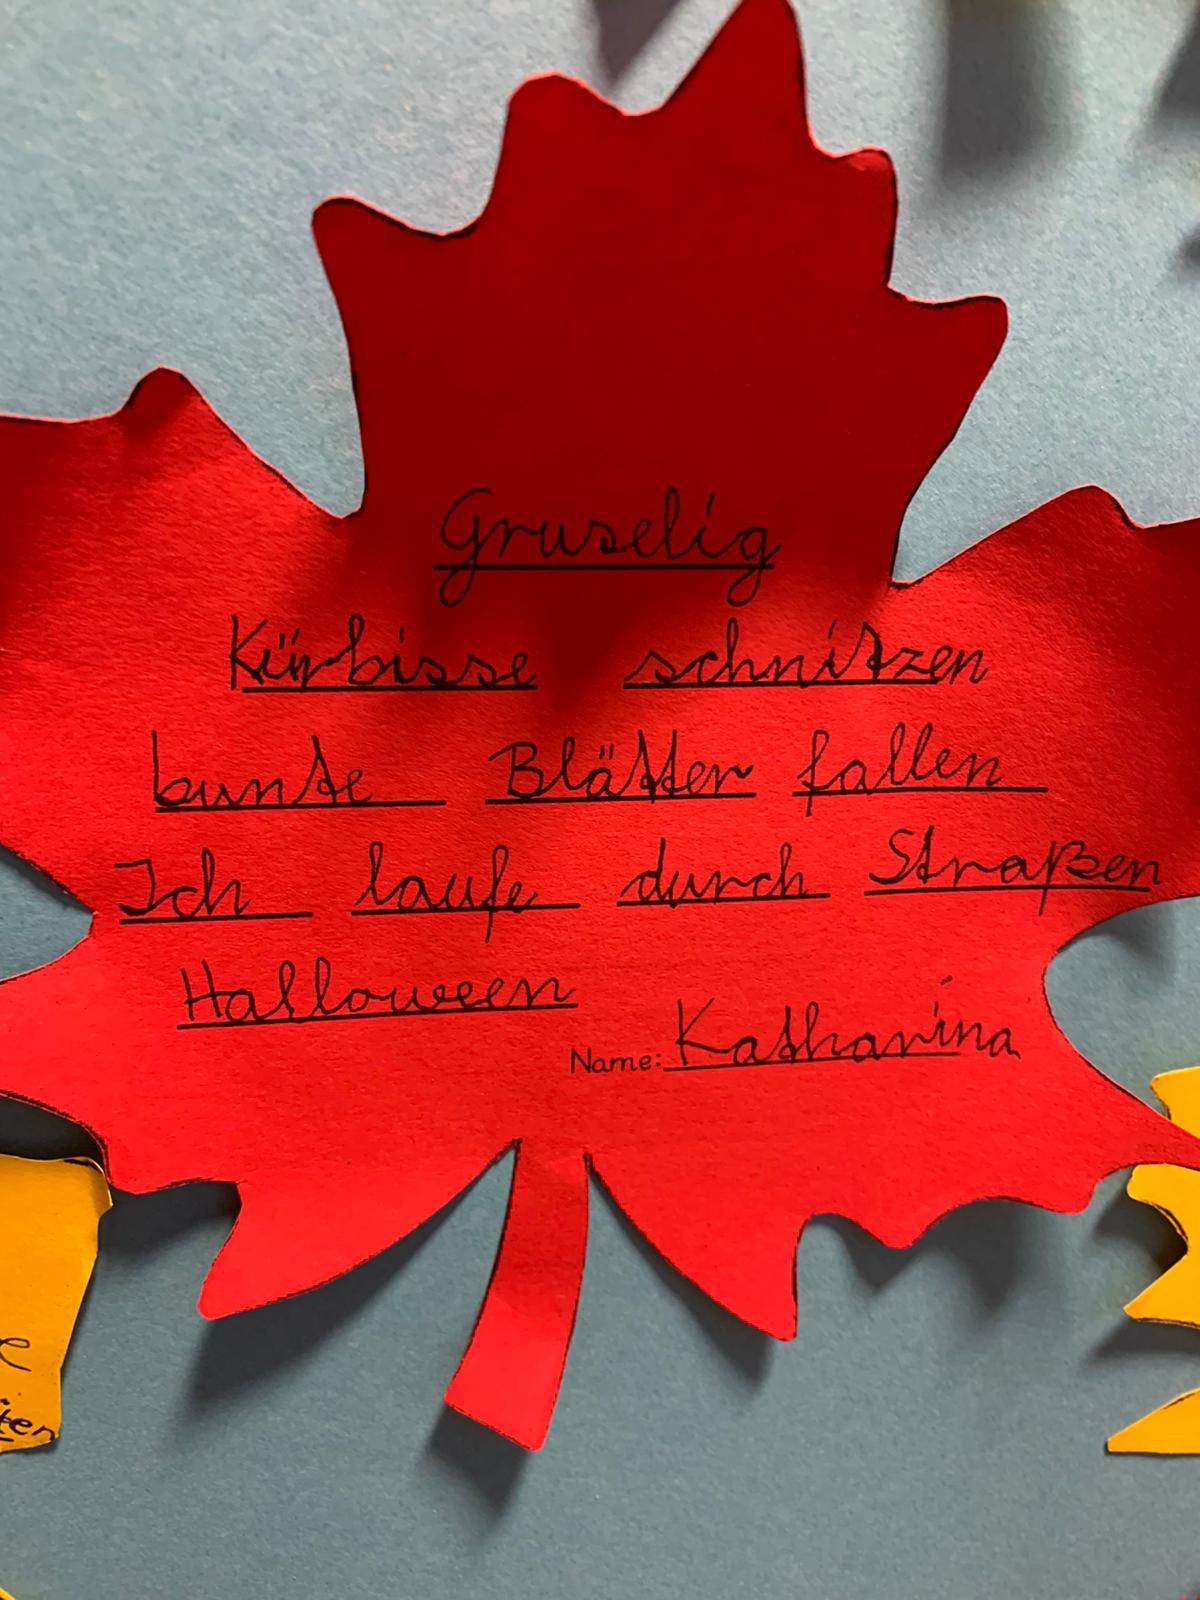 Gruselig
Kürbisse schnitzen
bunte Blätter fallen
Ich laufe durch Straßen
Halloween
Name: Katharina